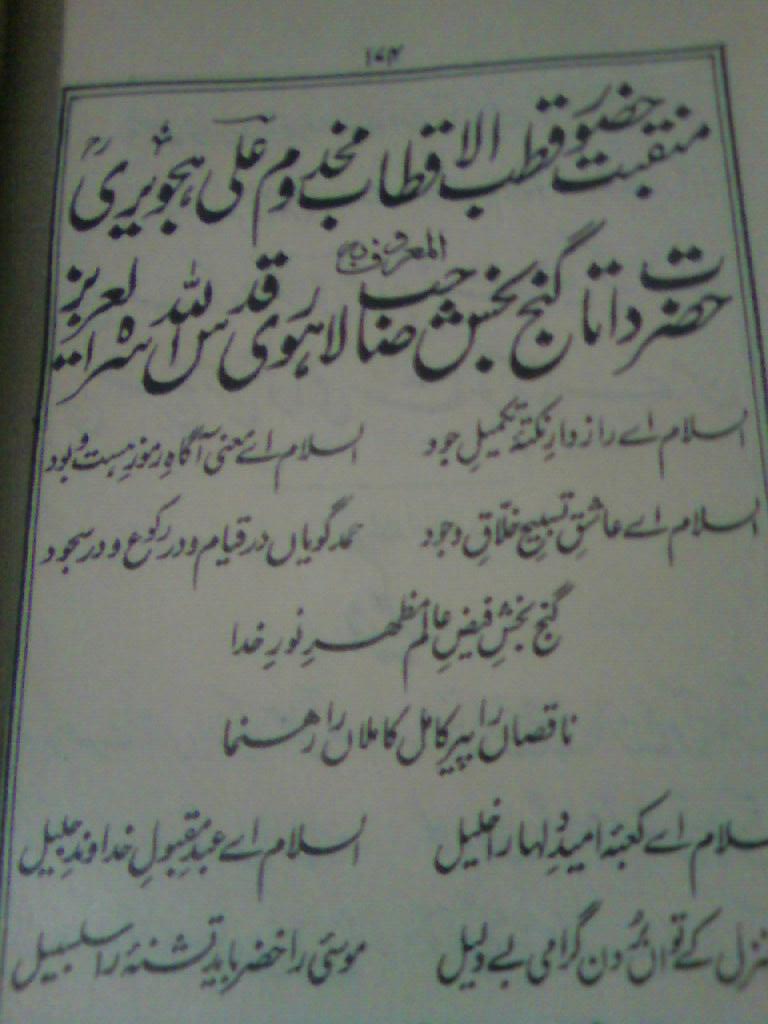 ۱۷۴
منقبت حضور قطب الاقطاب مخدوم علی ہجویریؒ
المعروف بہ
حضرت داتا گنج بخش صاحب لاہوری قدس اللہ سرہ العزیز
السلام اے رازدارِ نکتۂ تکمیلِ جود السلام اے معنی آگاہِ رموزِ ہست و بود
السلام اے عاشقِ تسبیحِ خلّاقِ وجود حمد گویاں در قیام و در رکوع و در سجود
گنج بخشِ فیضِ عالم مظہرِ نورِ خدا
ناقصاں را پیرِ کامل کاملاں را رہنما
السلام اے کعبۂ امیدِ دلہا را خلیل السلام اے عبدِ مقبولِ خداوندِ جلیل
منزل کے تواں بُردن گرامی بے دلیل موسیٰ را خضر باید تشنۂ را سلسبیل